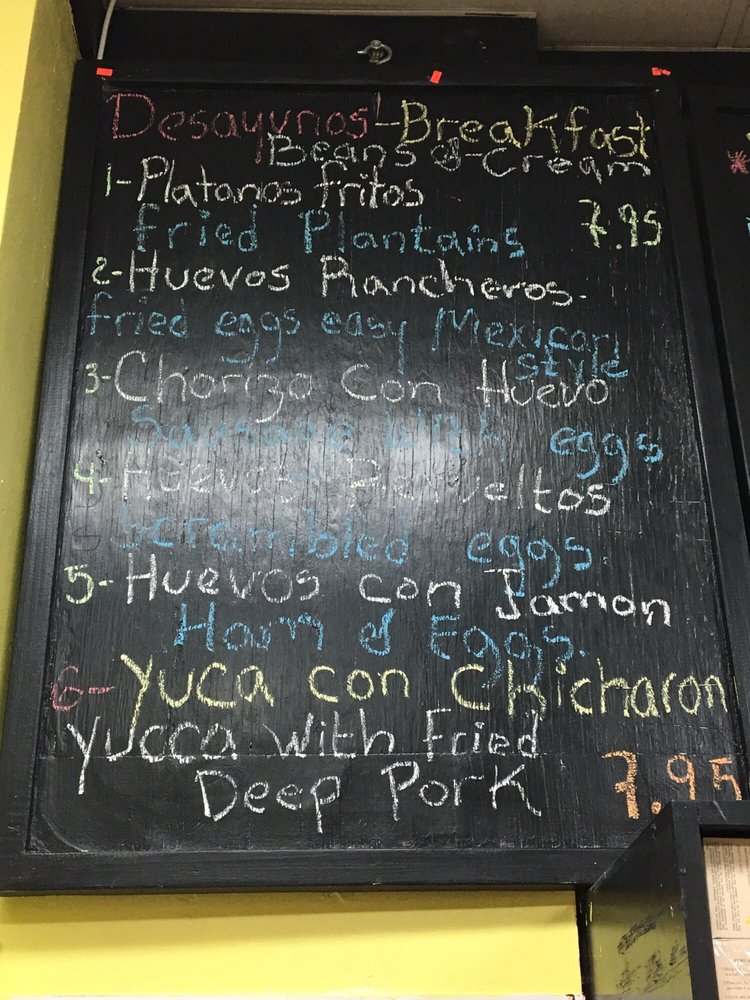 Desayunos - Breakfast
Beans & Cream
1- Platanos fritos
Fried Plantains 7.95
2- Huevos Rancheros.
fried eggs easy Mexican
style
3- Chorizo Con Huevo
Sausage With eggs
4- Huevos Revueltos
Scrambled eggs.
5- Huevos con Jamon
Ham & Eggs.
6- Yuca con Chicharon
yucca with Fried
Deep Pork 7.95